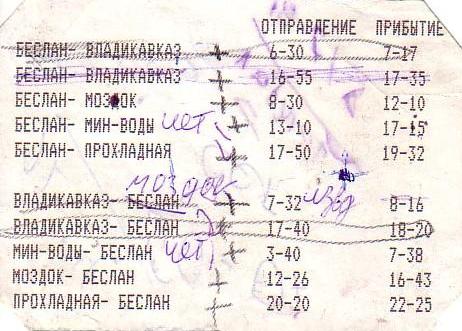 ОТПРАВЛЕНИЕ ПРИБЫТИЕ
БЕСЛАН- ВЛАДИКАВКАЗ 6-30 7-17
БЕСЛАН- ВЛАДИКАВКАЗ 16-55 17-35
БЕСЛАН- МОЗДОК 8-30 12-10
БЕСЛАН- МИН-ВОДЫ чет 13-10 17-15
БЕСЛАН- ПРОХЛАДНАЯ 17-50 19-32
моздок
ВЛАДИКАВКАЗ- БЕСЛАН 7-32 8-16
ВЛАДИКАВКАЗ- БЕСЛАН 17-40 18-20
МИН-ВОДЫ- БЕСЛАН чет 3-40 7-38
МОЗДОК- БЕСЛАН 12-26 16-43
ПРОХЛАДНАЯ- БЕСЛАН 20-20 22-25